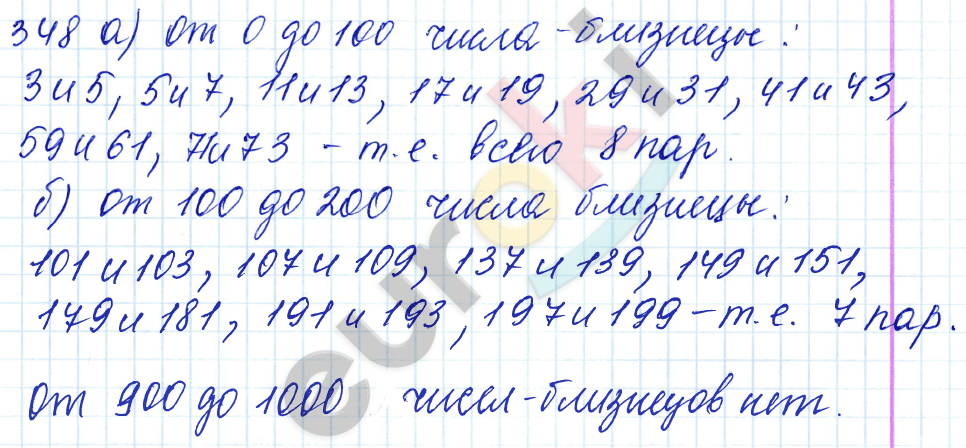 348 а) от 0 до 100 числа-близнецы:
3 и 5, 5 и 7, 11 и 13, 17 и 19, 29 и 31, 41 и 43,
59 и 61, 71 и 73 - т.е. всего 8 пар.
б) от 100 до 200 числа близнецы:
101 и 103, 107 и 109, 137 и 139, 149 и 151,
179 и 181, 191 и 193, 197 и 199 - т.е. 7 пар.
От 900 до 1000 чисел-близнецов нет.
euroki